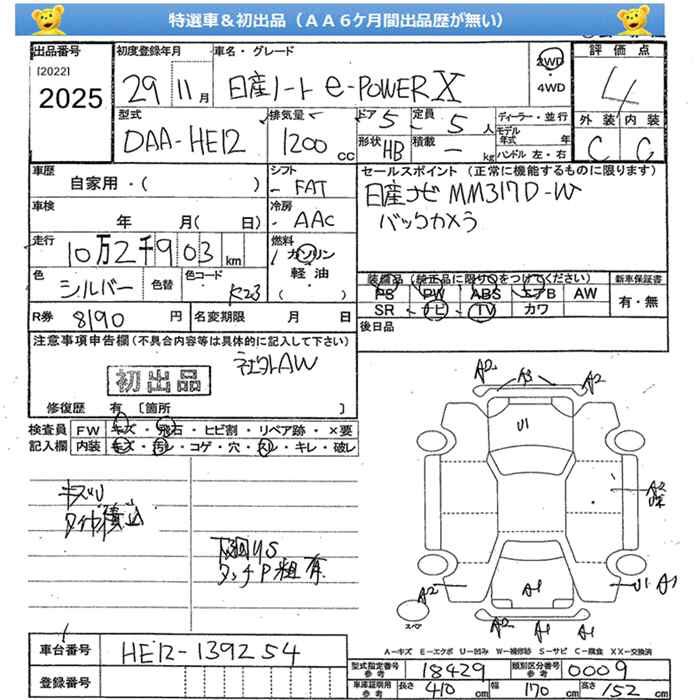 特選車＆初出品（ＡＡ６ケ月間出品歴が無い）
出品番号
[2022]
2025
初度登録年月
29 11月
車名・グレード
日産ノート e-POWER X
2WD
・
4WD
評価点
4
外装 内装
C C
型式
DAA-HE12
排気量
1200 cc
ドア 5
形状 HB
定員 5 人
積載 － kg
ディーラー・並行
モデル年式 年
ハンドル 左・右
車歴
自家用・( )
シフト
FAT
セールスポイント（正常に機能するものに限ります）
日産ナビ MM317D-W
バックカメラ
車検
年 月( 日)
冷房
AAC
走行
10万2千903 km
燃料
ガソリン
軽油
( )
色
シルバー
色替
色コード
K23
装備品（純正品に限り○をつけてください）
PS PW ABS エアB AW
SR ナビ TV カワ
新車保証書
有・無
R券 8190 円
名変期限 月 日
後日品
注意事項申告欄（不具合内容等は具体的に記入して下さい）
社外AW
初出品
修復歴 有 〔箇所 〕
検査員記入欄
FW キズ・飛石・ヒビ割・リペア跡・×要
内装 キズ・汚レ・コゲ・穴・スレ・キレ・破レ
キズU
タイヤ積込
下廻りS
タッチP粗 有
A2 A3 A2
U1
A2
A2 A1 U1 A1
スペア
A2 A1 A1
A－キズ E－エクボ U－凹み W－補修跡 S－サビ C－腐食 XX－交換済
車台番号
HE12-139254
登録番号
型式指定番号 参考 18429
類別区分番号 参考 0009
車庫証明用 参考 長さ 410 cm 幅 170 cm 高さ 152 cm